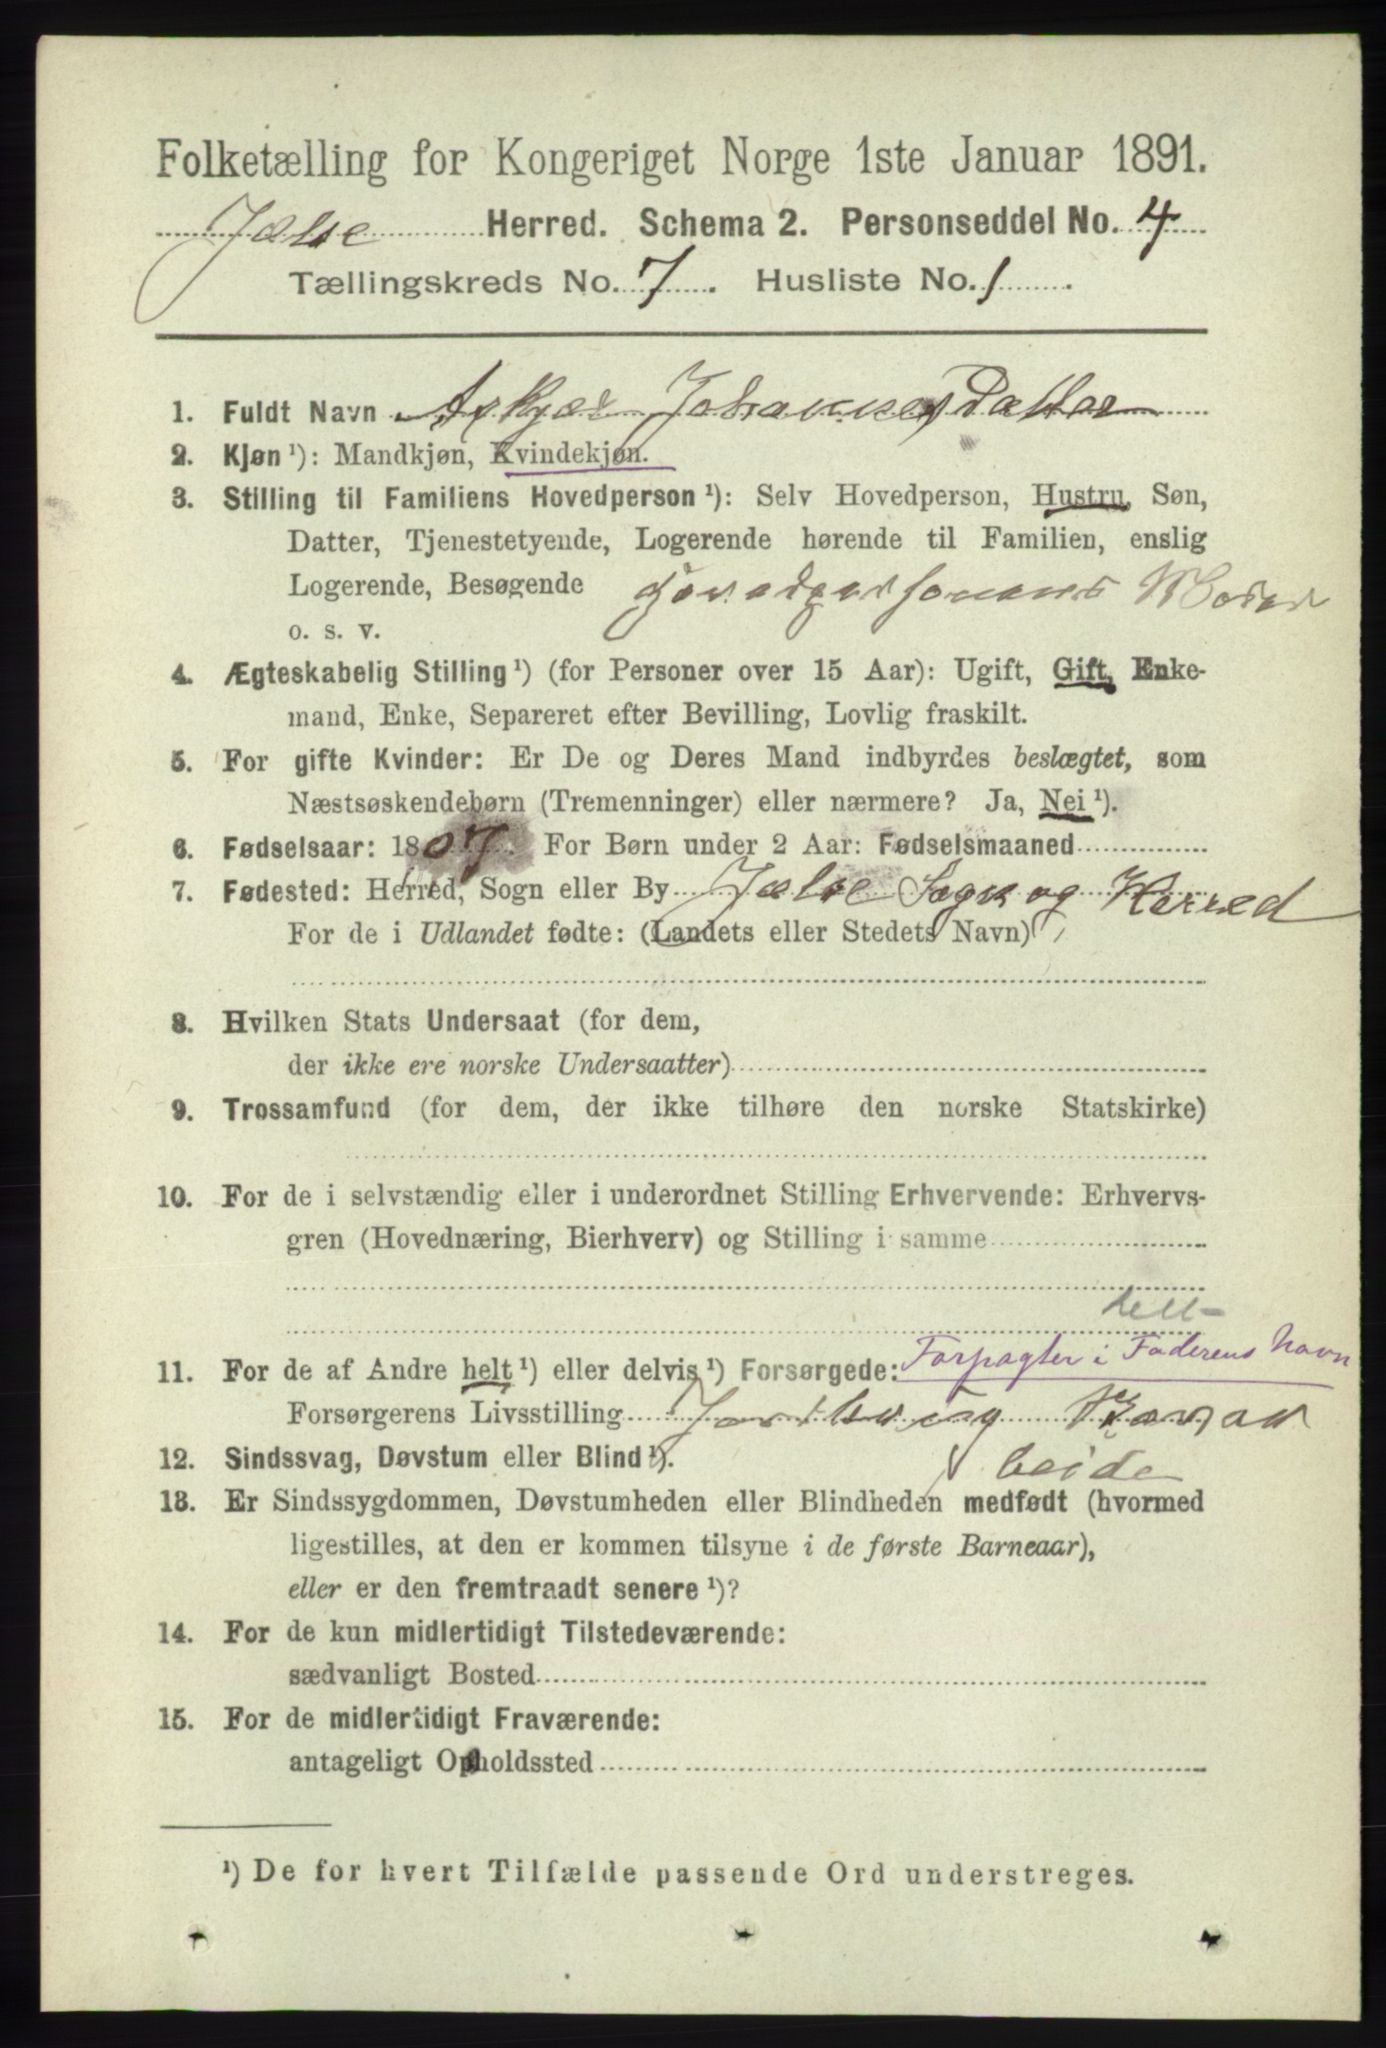 Folketælling for Kongeriget Norge 1ste Januar 1891.
Jælse Herred. Schema 2. Personseddel No. 4
Tællingskreds No. 7. Husliste No. 1.
1. Fuldt Navn Askjær Johannesdatter
2. Kjøn ¹): Mandkjøn, Kvindekjøn.
3. Stilling til Familiens Hovedperson ¹): Selv Hovedperson, Hustru, Søn,
Datter, Tjenestetyende, Logerende hørende til Familien, enslig
Logerende, Besøgende Hovedpersonens Moder
o. s. v.
4. Ægteskabelig Stilling ¹) (for Personer over 15 Aar): Ugift, Gift, Enke-
mand, Enke, Separeret efter Bevilling, Lovlig fraskilt.
5. For gifte Kvinder: Er De og Deres Mand indbyrdes beslægtet, som
Næstsøskendebørn (Tremenninger) eller nærmere? Ja, Nei ¹).
6. Fødselsaar: 1807. For Børn under 2 Aar: Fødselsmaaned
7. Fødested: Herred, Sogn eller By Jælse Sogn og Herred
For de i Udlandet fødte: (Landets eller Stedets Navn)
8. Hvilken Stats Undersaat (for dem,
der ikke ere norske Undersaatter)
9. Trossamfund (for dem, der ikke tilhøre den norske Statskirke)
10. For de i selvstændig eller i underordnet Stilling Erhvervende: Erhvervs-
gren (Hovednæring, Bierhverv) og Stilling i samme
11. For de af Andre helt ¹) eller delvis ¹) Forsørgede: Forpagter i Faderens Navn
Forsørgerens Livsstilling
12. Sindssvag, Døvstum eller Blind ¹).
13. Er Sindssygdommen, Døvstumheden eller Blindheden medfødt (hvormed
ligestilles, at den er kommen tilsyne i de første Barneaar),
eller er den fremtraadt senere ¹)?
14. For de kun midlertidigt Tilstedeværende:
sædvanligt Bosted
15. For de midlertidigt Fraværende:
antageligt Opholdssted
¹) De for hvert Tilfælde passende Ord understreges.